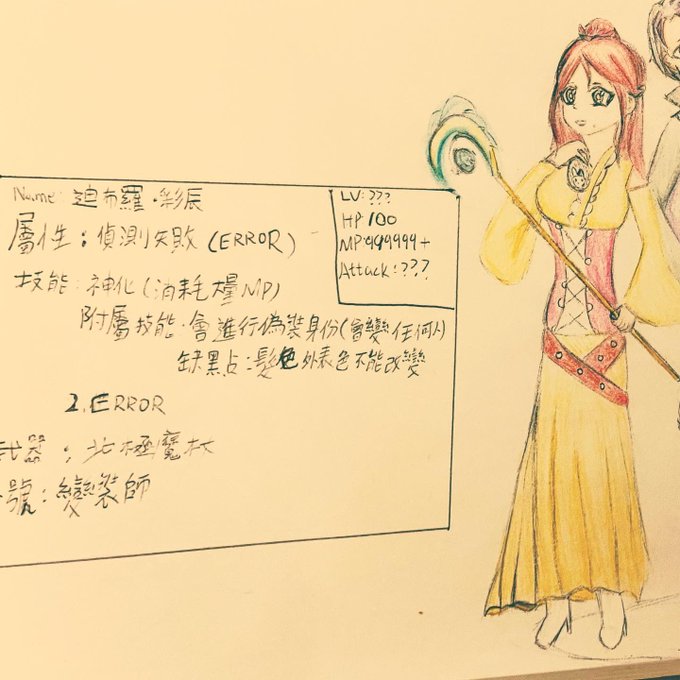 Name: 迫布羅·彩辰
屬性:偵測失敗(ERROR)
技能:神化(消耗大量MP)
附屬技能:會進行偽裝身份(會變任何人)
缺點:髮色外表色不能改變
2.ERROR
武器:北極魔杖
號:變裝師
LV:???
HP:100
MP:999999+
Attack:???